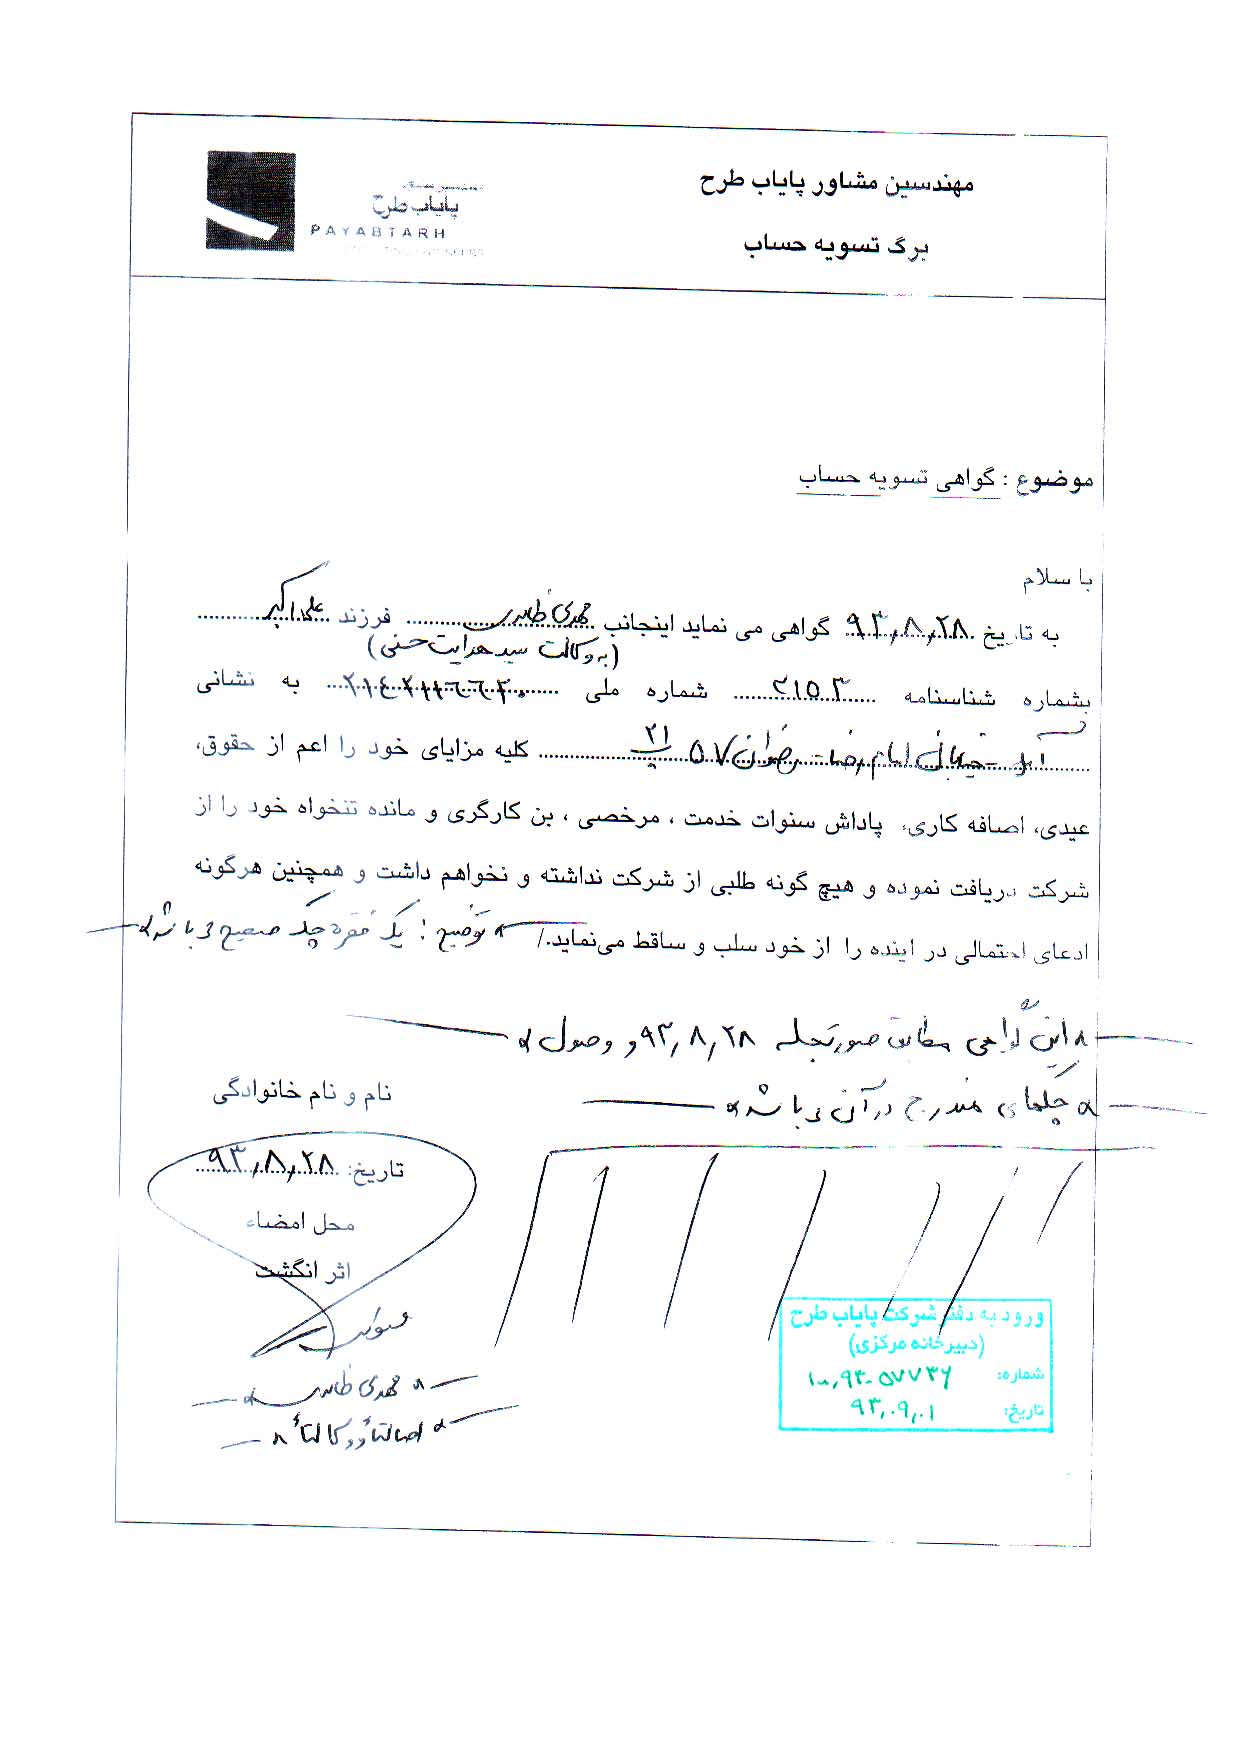 مهندسین مشاور پایاب طرح
پایاب طرح
PAYABTARH
برگ تسویه حساب
موضوع : گواهی تسویه حساب
با سلام
به تاریخ ۹۳,۸,۲۸ گواهی می نماید اینجانب مهدی طاهری فرزند علی اکبر
(به وکالت سید هدایت حسنی)
بشماره شناسنامه ۲۱۵۳ شماره ملی به نشانی
خیابان امام رضا - رضوان ۵۷ پ ۲۱ کلیه مزایای خود را اعم از حقوق،
عیدی، اضافه کاری، پاداش سنوات خدمت ، مرخصی ، بن کارگری و مانده تنخواه خود را از
شرکت دریافت نموده و هیچ گونه طلبی از شرکت نداشته و نخواهم داشت و همچنین هرگونه
ادعای احتمالی در اینده را از خود سلب و ساقط می‌نماید./ توضیح : یک فقره چک صحیح می باشد
این گواهی مطابق صورتجلسه ۹۳,۸,۲۸ و وصول
چکهای مندرج در آن می باشد
نام و نام خانوادگی
تاریخ: ۹۳,۸,۲۸
محل امضاء
اثر انگشت
مهدی طاهری
اصالتاً و وکالتاً
ورود به دفتر شرکت پایاب طرح
(دبیرخانه مرکزی)
شماره: ۱۰۰,۹۳-۵۷۷۳۶
تاریخ: ۹۳,۰۹,۰۱